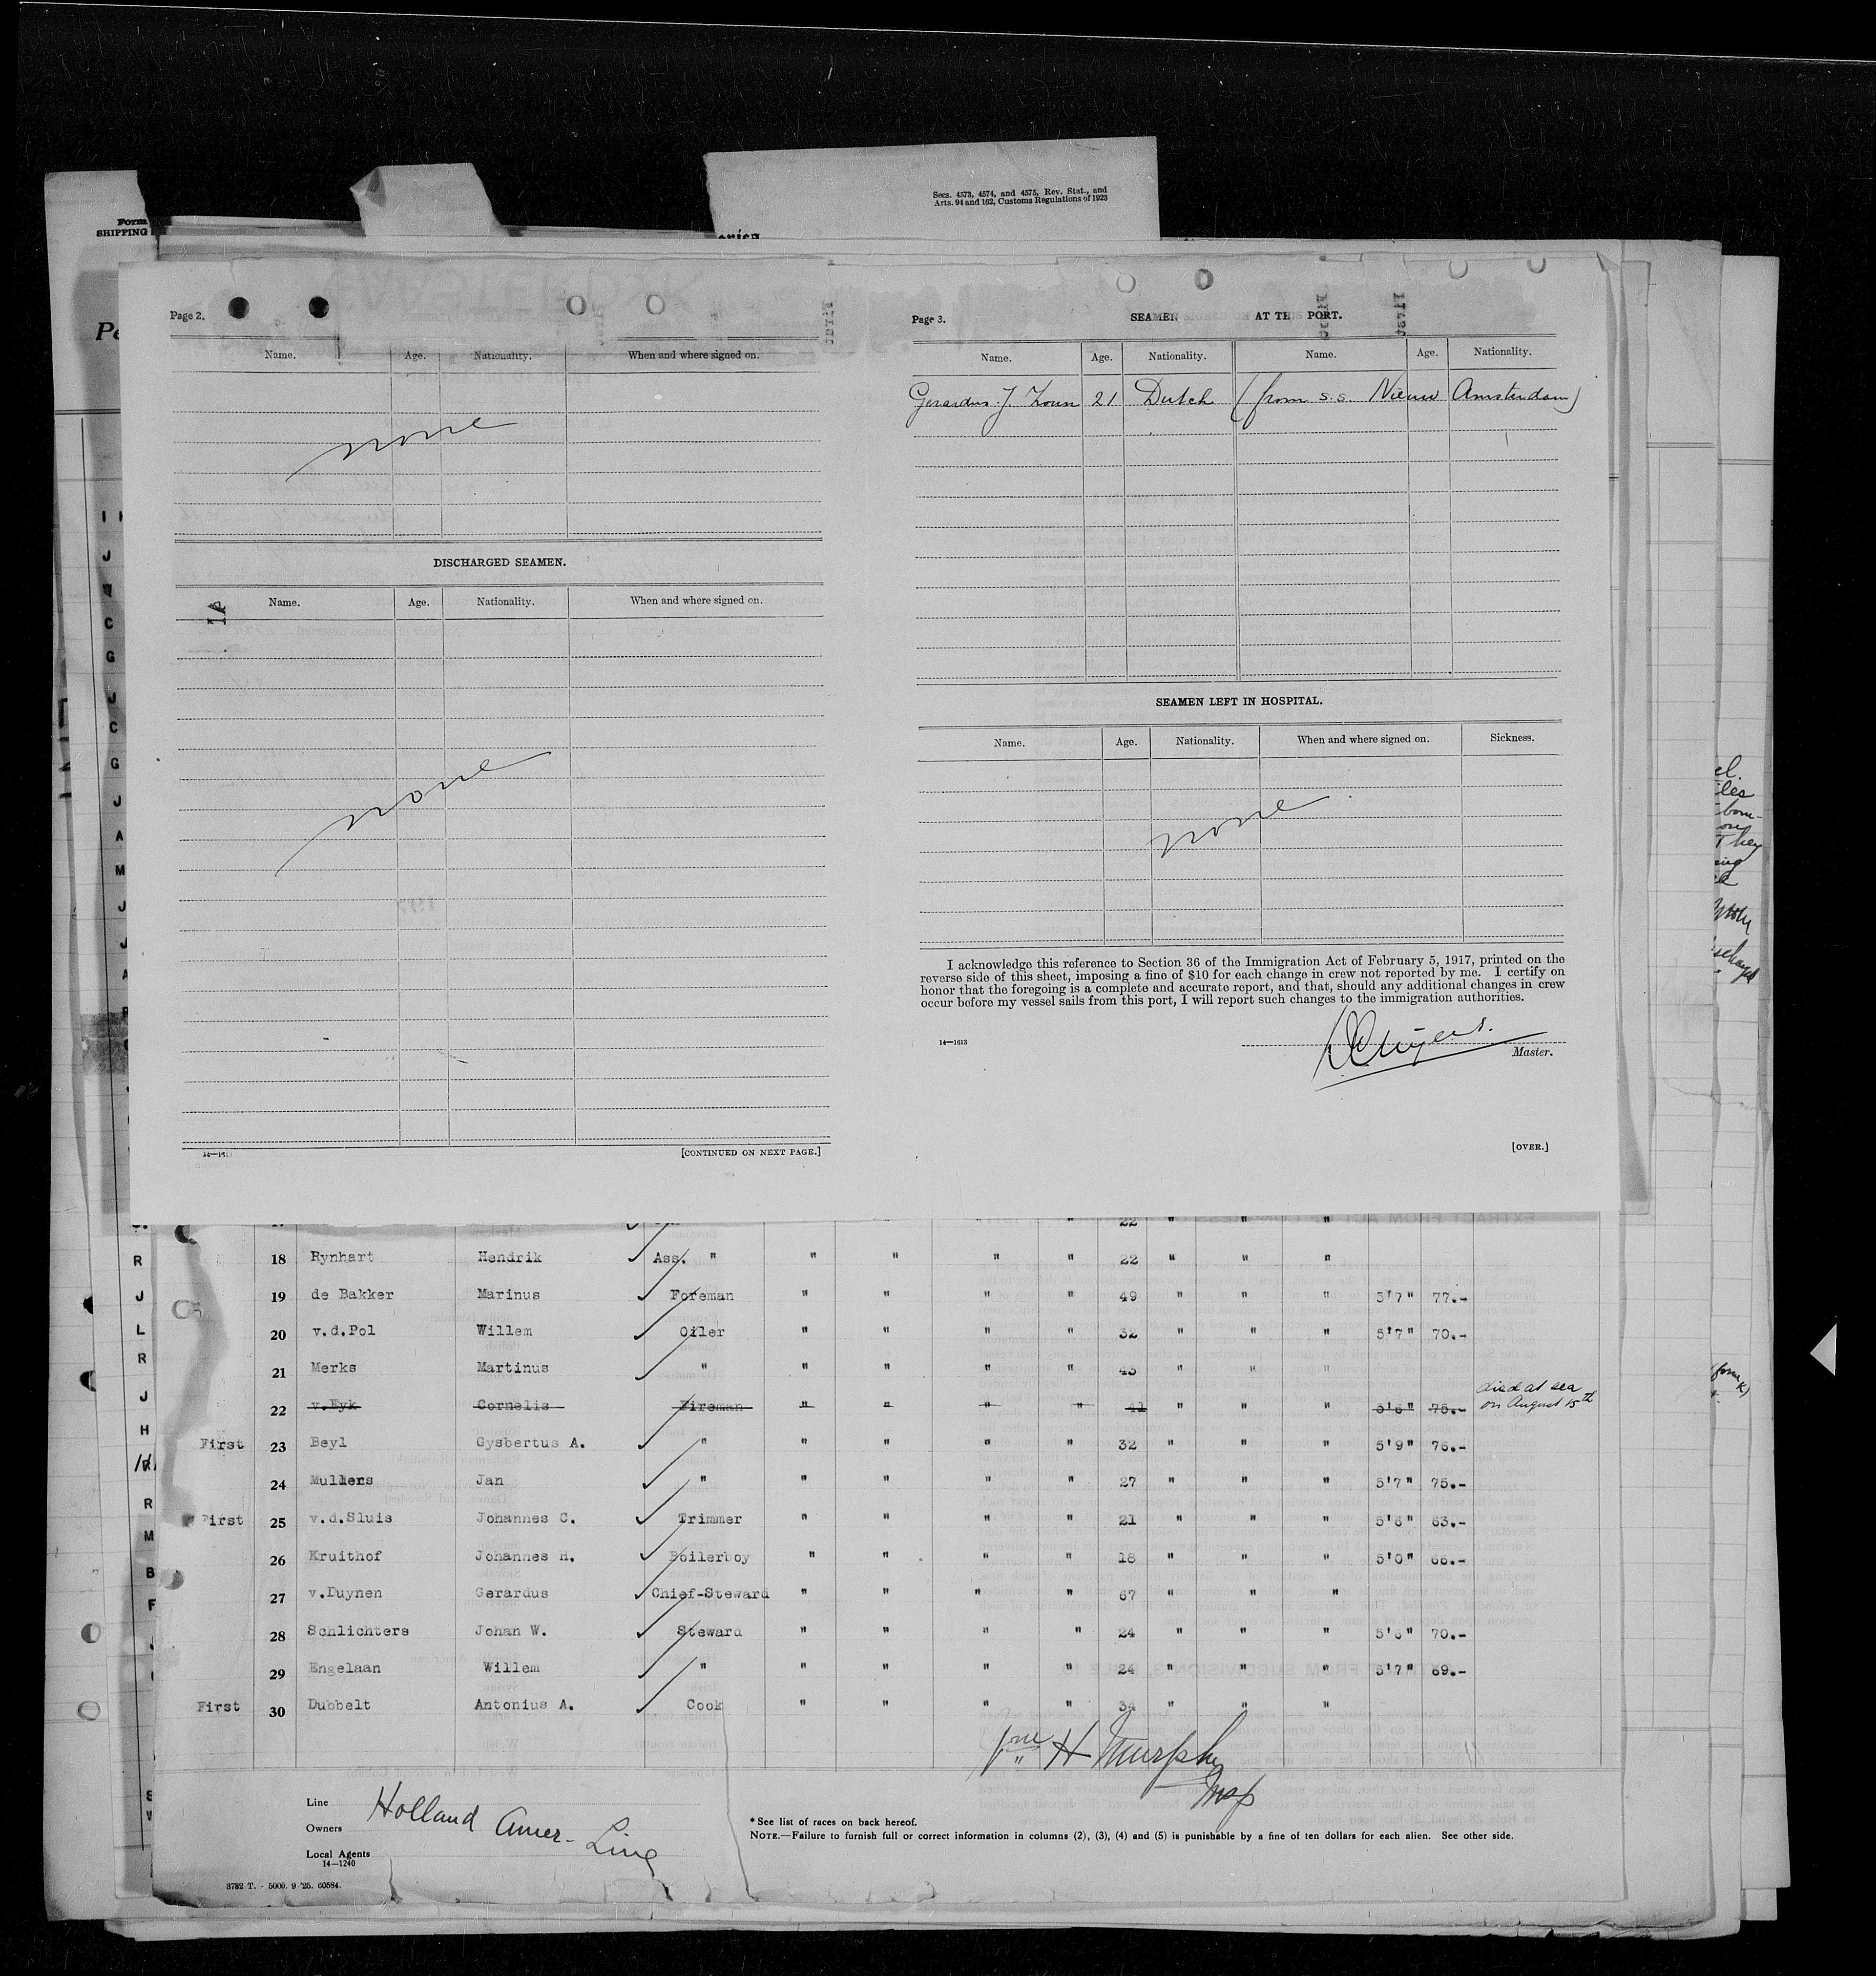 Secs. 4573, 4574, and 4575, Rev. Stat., and
Arts. 94 and 162, Customs Regulations of 1923
Form
SHIPPING
Page 2.
Name. Age. Nationality. When and where signed on.
none
DISCHARGED SEAMEN.
Name. Age. Nationality. When and where signed on.
1A
none
14—1613 [CONTINUED ON NEXT PAGE.]
Page 3. SEAMEN AT THE PORT.
Name. Age. Nationality. Name. Age. Nationality.
Gerardus J. 21 Dutch (from s.s. Nieuw Amsterdam)
SEAMEN LEFT IN HOSPITAL.
Name. Age. Nationality. When and where signed on. Sickness.
none
I acknowledge this reference to Section 36 of the Immigration Act of February 5, 1917, printed on the
reverse side of this sheet, imposing a fine of $10 for each change in crew not reported by me. I certify on
honor that the foregoing is a complete and accurate report, and that, should any additional changes in crew
occur before my vessel sails from this port, I will report such changes to the immigration authorities.
14—1613
Master.
[OVER.]
22 " " "
18 Rynhart Hendrik Ass. " " " " " 22 " " "
19 de Bakker Marinus Foreman " " " " 49 " " " 5'7" 77.-
20 v.d.Pol Willem Oiler " " " " 32 " " " 5'7" 70.-
21 Merks Martinus " " " " " 43 " " "
22 v.Eyk Cornelis Fireman " " " " 41 " " " 5'6" 75.- died at sea
on August 15th
First 23 Beyl Gysbertus A. " " " " " 32 " " " 5'9" 76.-
24 Mullers Jan " " " " " 27 " " " 5'7" 75.-
First 25 v.d.Sluis Johannes C. Trimmer " " " " 21 " " " 5'6" 63.-
26 Kruithof Johannes H. Boilerboy " " " " 18 " " " 5'0" 66.-
27 v.Duynen Gerardus Chief-Steward " " " " 67 " " "
28 Schlichters Johan W. Steward " " " " 24 " " " 5'6" 70.-
29 Engelaan Willem " " " " " 24 " " " 5'7" 69.-
First 30 Dubbelt Antonius A. Cook " " " " 34 " " "
H Murphy
Insp
Line
Holland Amer- Line
Owners
Local Agents
14—1240
3782 T. - 5000. 9-'25. 60584.
* See list of races on back hereof.
NOTE.—Failure to furnish full or correct information in columns (2), (3), (4) and (5) is punishable by a fine of ten dollars for each alien. See other side.